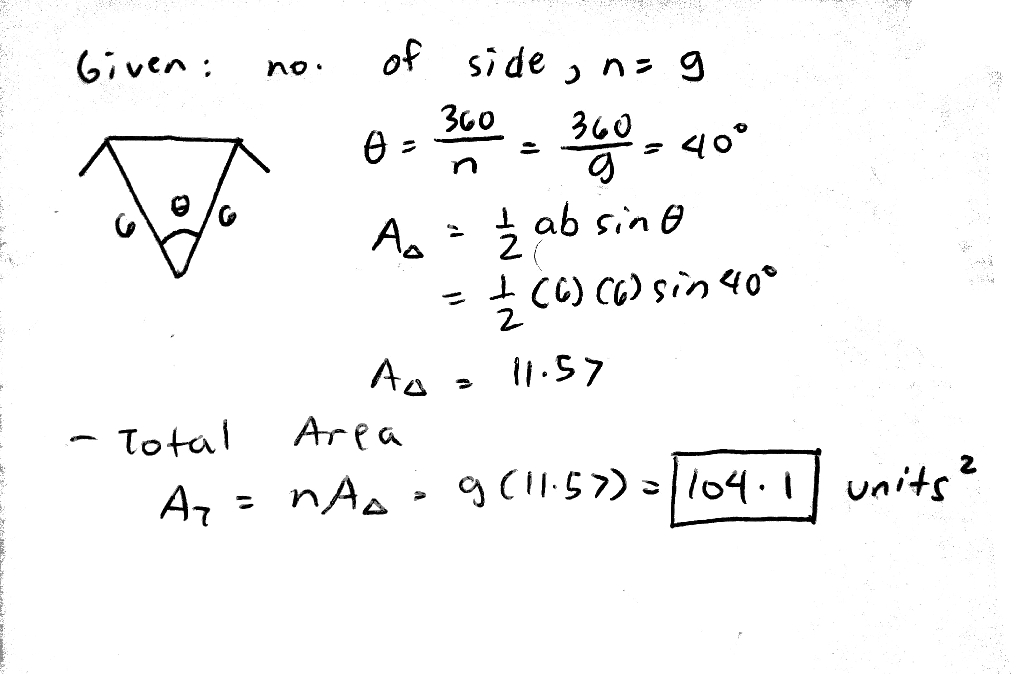 Given: no. of side, n = 9
θ = 360/n = 360/9 = 40°
6 θ 6
A△ = 1/2 ab sin θ
= 1/2 (6) (6) sin 40°
A△ = 11.57
- Total Area
A_T = nA△ = 9 (11.57) = 104.1 units²